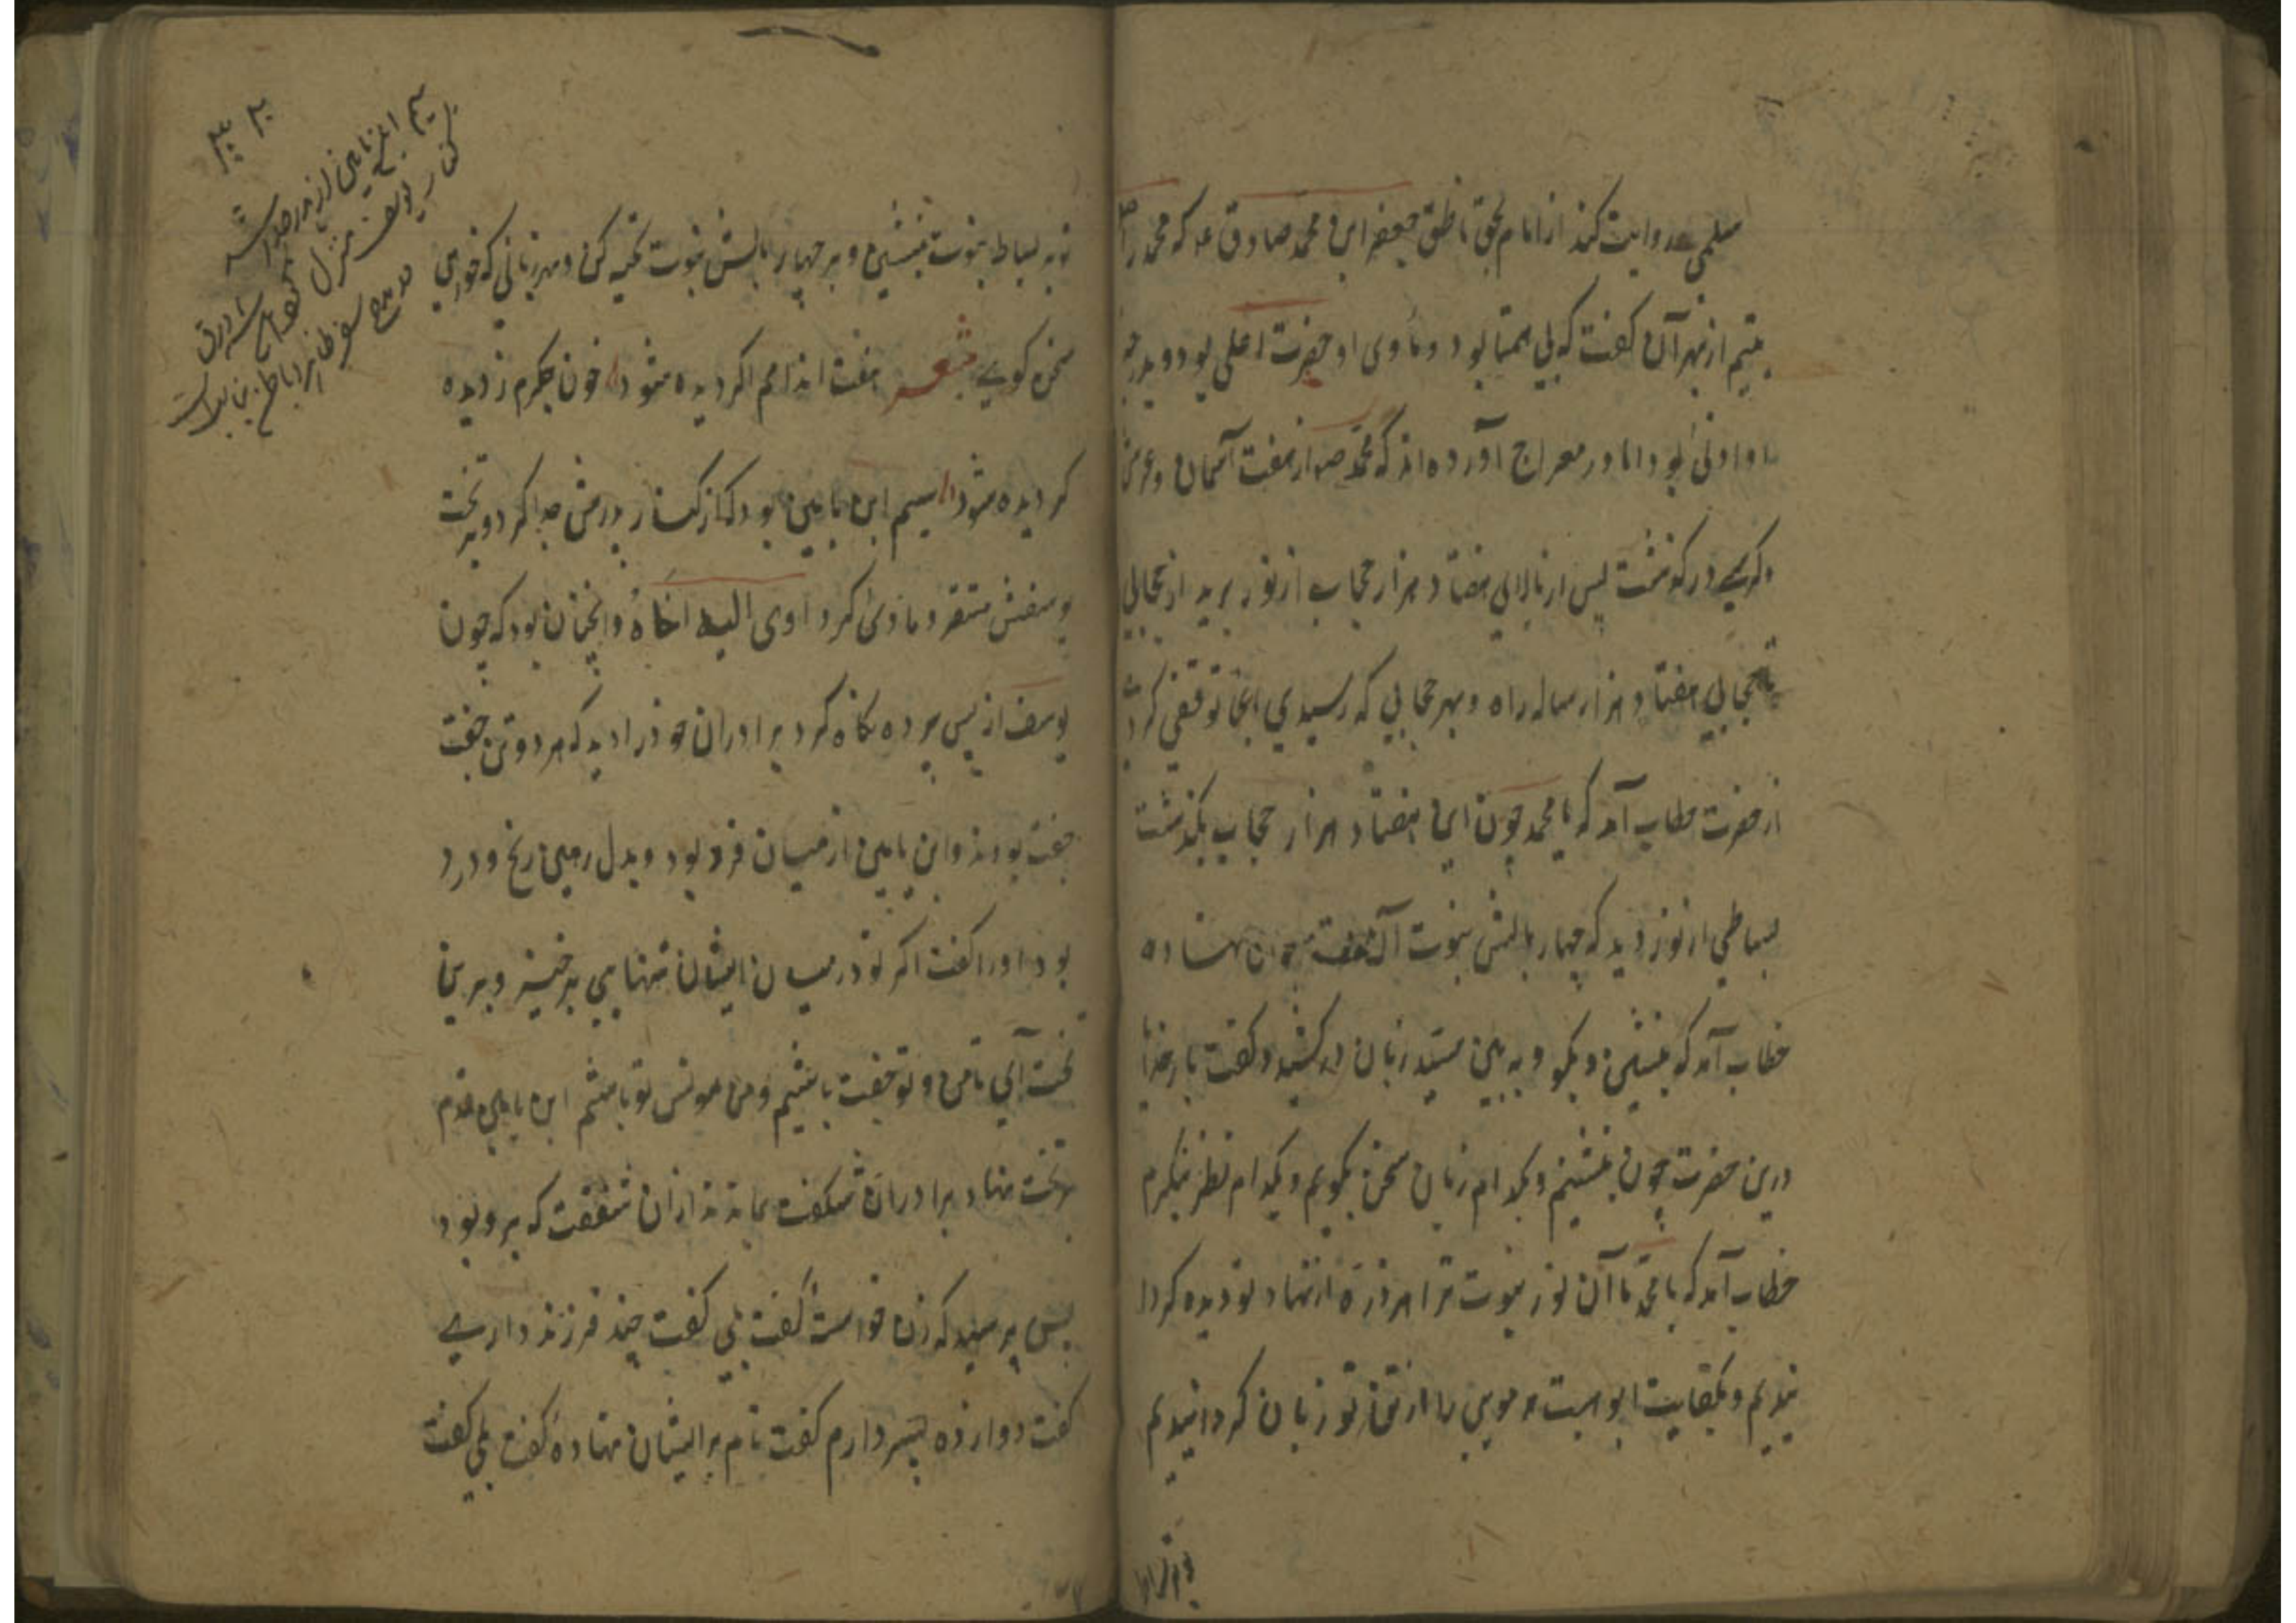 سلمی روایت کند از امام بحق ناطق جعفر ابن محمد صادق ع که محمد را صلعم
یتیم از بهر آن کفت که بی همتا بود و ماوی او حضرت اعلی بود و بدرجه
او ادنی بود اما در معراج آورده اند که محمد ص از هفت آسمان و عرش
و کرسی در کذشت پس از بالای هفتاد هزار حجاب از نور برید از حجابی
تا حجابی هفتاد هزار ساله راه و بهر حجابی که رسیدی انجا توقفی کردی
از حضرت خطاب آمد که یا محمد چون این هفتاد هزار حجاب بکذشت
بساطی از نور دید که چهار بالش نبوت آن نهاده
خطاب آمد که بنشین و بکو و به بین سید زبان در کشید و کفت بار خدایا
درین حضرت چون بنشینم و بکدام زبان سخن بکویم و بکدام نظر بنکرم
خطاب آمد که یا محمد ما آن نور نبوت ترا هر ذره از نهاد تو دیده کردا
نیدیم و هر مویی را از تن تو زبان کردانیدیم
تو بر بساط نبوت بنشین و بر چهار بالش نبوت تکیه کن و بهر زبانی که خواهی
سخن کوی شعر هفت اندامم اکر دیده شود خون جکرم ز دیده
کردیده شود سیم ابن یامین بود که از کنار پدرش جدا کرد و بر تخت
یوسفش مستقر و ماوی کرد اوی الیه اخاه و انچنان بود که چون
یوسف از پس پرده نکاه کرد برادران خود را دید که هر دو تن جفت
جفت بودند و ابن یامین از میان فرد بود و بدل رهین رنج و درد
بود او را کفت اکر تو در میان ایشان تنهایی برخیز و برین
تخت آی تا من و تو جفت باشیم و من مونس تو باشم ابن یامین قدم
بر تخت نهاد برادران شکفت بماندند از ان شفقت که برو بود
پس پرسید که زن خواستهٔ کفت بلی کفت چند فرزند داری
کفت دوازده پسر دارم کفت نام بر ایشان نهادهٔ کفت بلی کفت